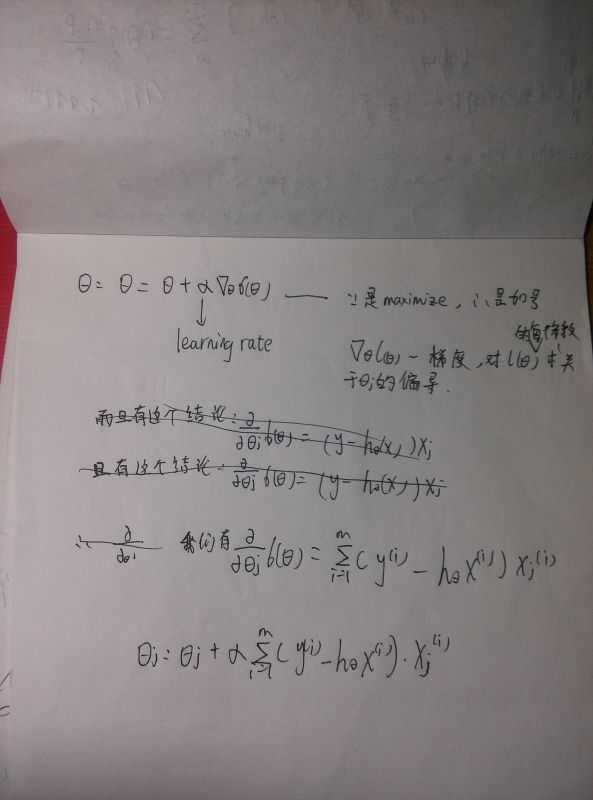 θ: θ = θ + α∇θ ℓ(θ) —— ∵是maximize, ∴是加号
learning rate
的每个参数
∇θℓ(θ) — 梯度, 对ℓ(θ) 求关
于θj的偏导.
而且有这个结论: ∂/∂θj ℓ(θ) = (y - hθ(x))xj
且有这个结论: ∂/∂θj ℓ(θ) = (y - hθ(x))xj
∴ ∂/∂θj 我们有 ∂/∂θj ℓ(θ) = Σ_{i=1}^{m} (y^(i) - hθ x^(i)) xj^(i)
θj: θj + α Σ_{i=1}^{m} (y^(i) - hθ x^(i)) · xj^(i)